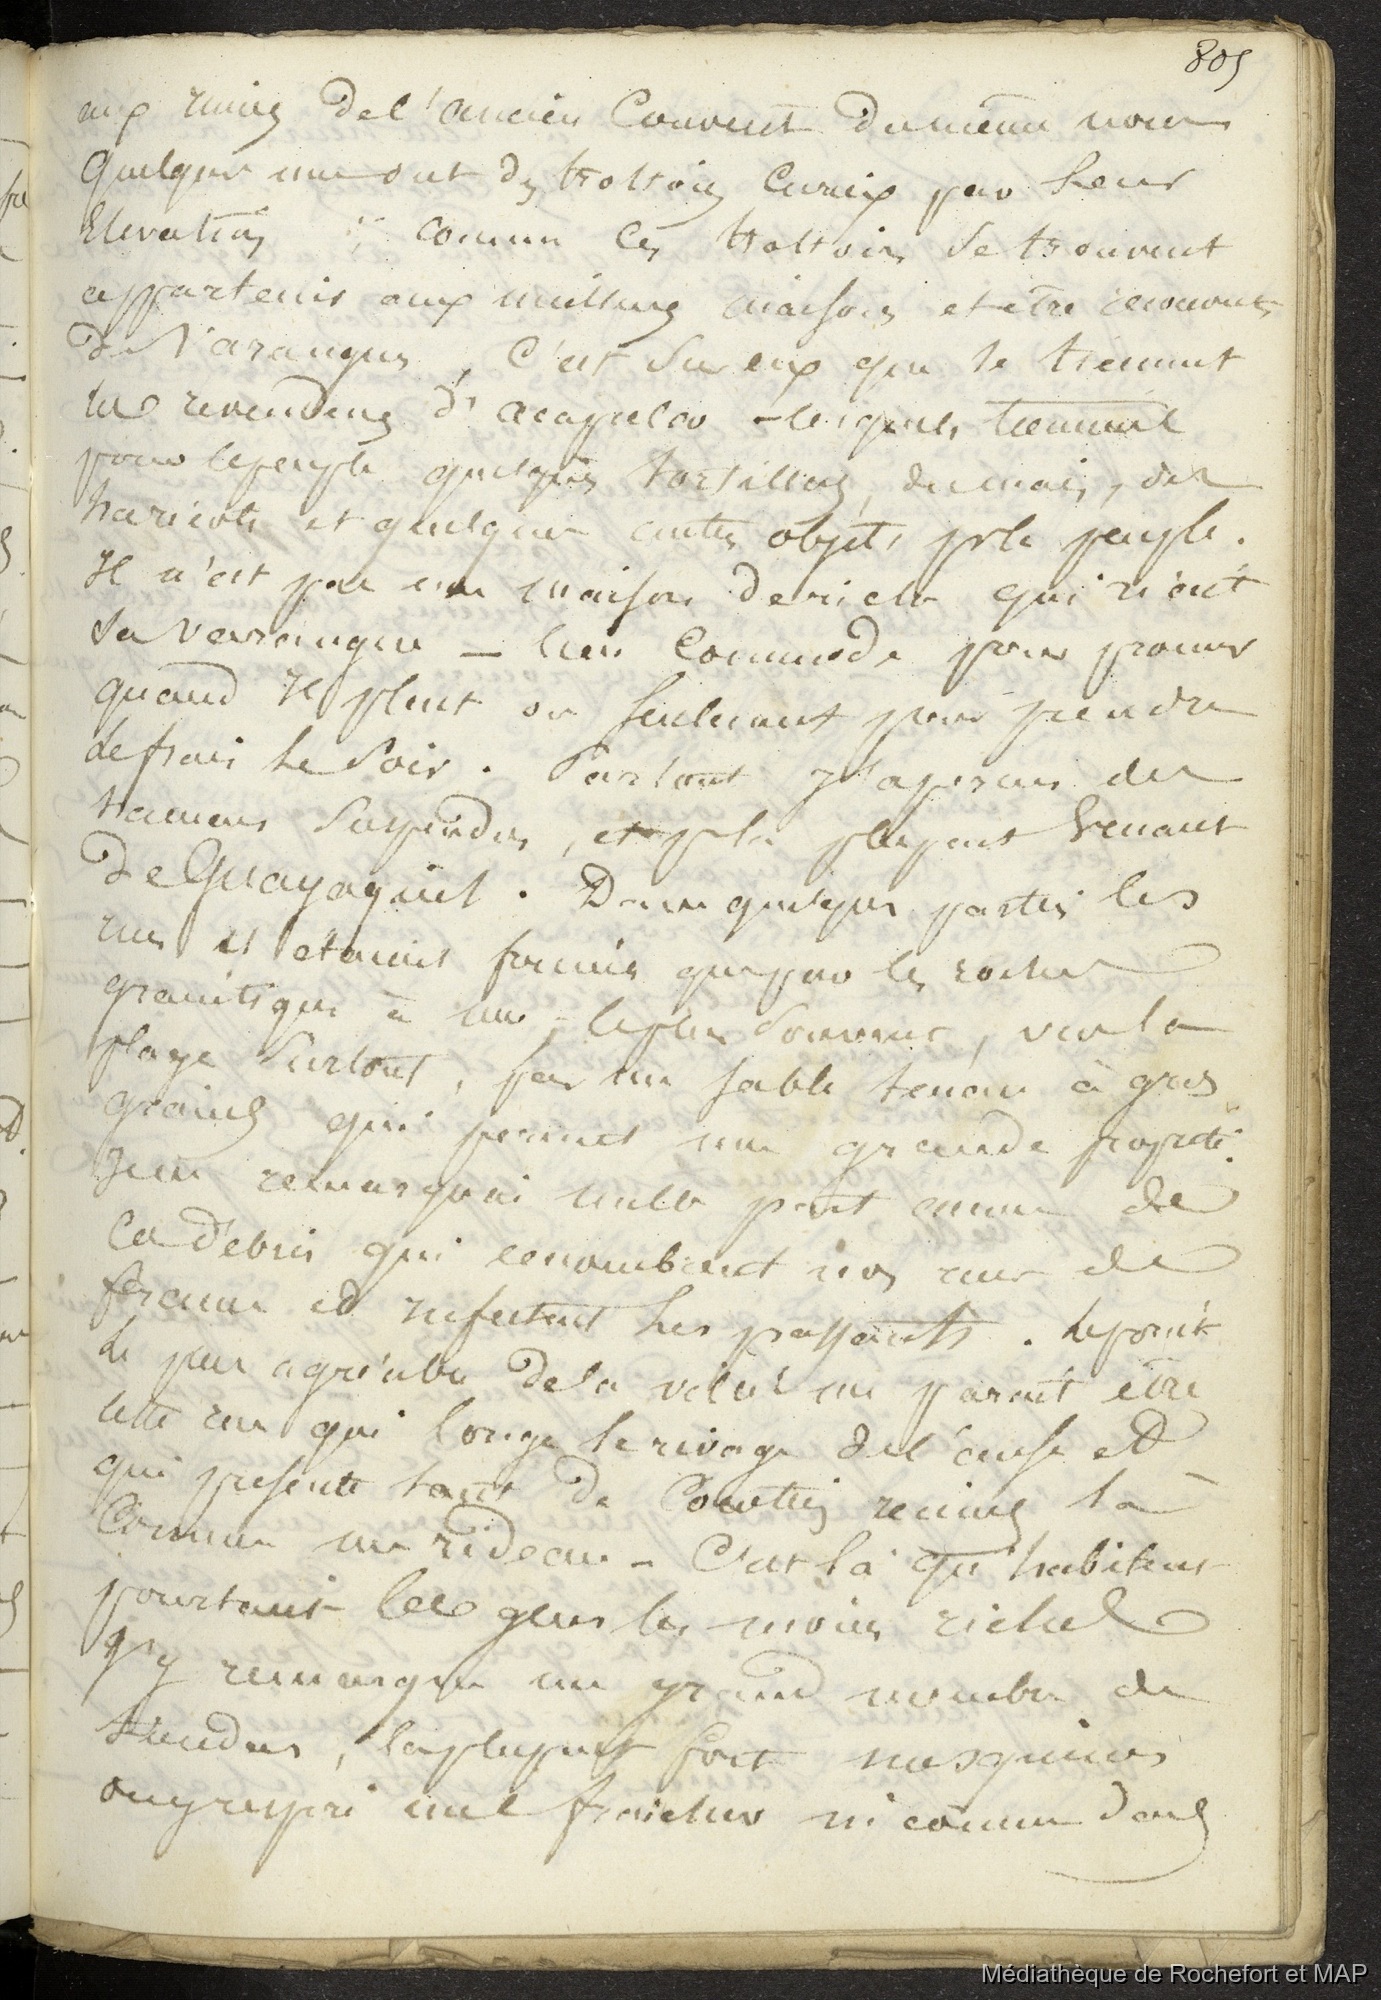 805
aux ruines de l'ancien Couvent du même nom
quelques unes ont des trottoirs curieux par leur
Elevation ; comme ces trottoirs se trouvent
appartenir aux meilleures maisons et être
de Varangues, C'est sur eux que se tiennent
les revendeurs d'acapulco - lesquels tiennent
pour le peuple quelques tortillas, du maïs, des
haricots et quelques autres objets pr le peuple.
Il n'est pas une maison de riche qui n'ait
sa varangue — lieu commode pour
quand il pleut ou seulement pour prendre
le frais le Soir. Partout j'y aperçus des
hamacs suspendus, et pr la plupart venant
de Guayaquil. Dans quelques parties les
rues n'étaient formées que par les roches
granitiques à nu, le plus souvent, vers la
plage surtout, par un sable à gros
grains qui permet une grande propreté.
Je ne remarquai nulle part aucun de
ces débris qui encombrent nos rues de
france et infectent les passants. Le point
le plus agréable de la ville me parait être
cette rue qui longe le rivage de l'anse et
qui présente tant de réunis là
Comme un rideau - C'est là qu'habitent
pourtant les gens les moins riches
J'y remarque un grand nombre de
tiendas, la plupart fort mesquines
on y respire une fraicheur ni comme dans
Médiathèque de Rochefort et MAP